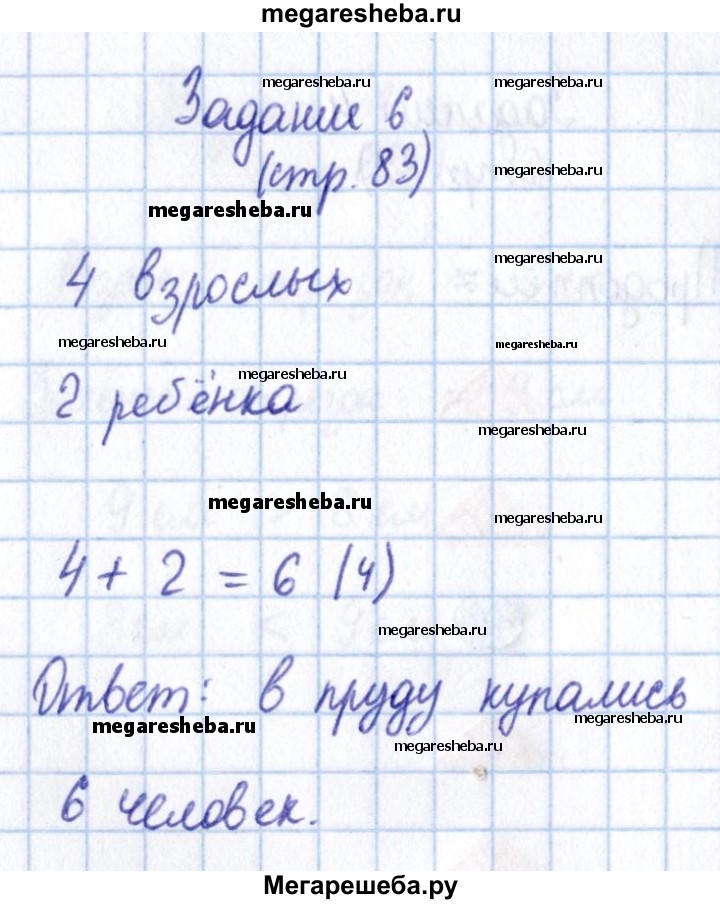 megaresheba.ru
megaresheba.ru megaresheba.ru
Задание 6
(стр. 83)
megaresheba.ru
megaresheba.ru
4 взрослых
megaresheba.ru
megaresheba.ru megaresheba.ru
megaresheba.ru
2 ребёнка
megaresheba.ru
megaresheba.ru
megaresheba.ru
4 + 2 = 6 (ч)
megaresheba.ru
Ответ: в пруду купались
megaresheba.ru megaresheba.ru
megaresheba.ru
6 человек.
Мегарешеба.ру